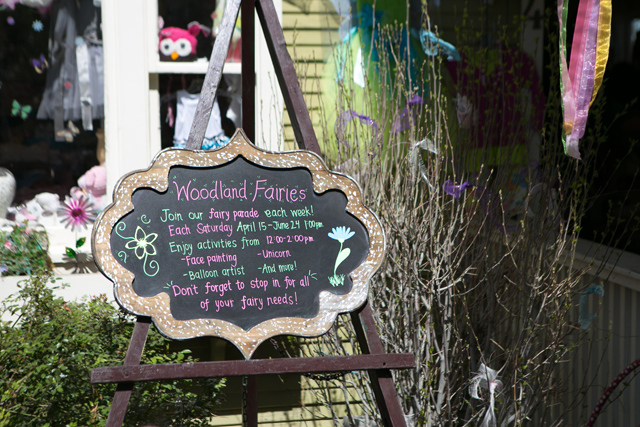 Woodland Fairies
Join our fairy parade each week!
Each Saturday April 15-June 24 1:00pm
Enjoy activities from 12:00-2:00pm
-Face painting -Unicorn
-Balloon artist -And more!
"Don't forget to stop in for all"
of your fairy needs!